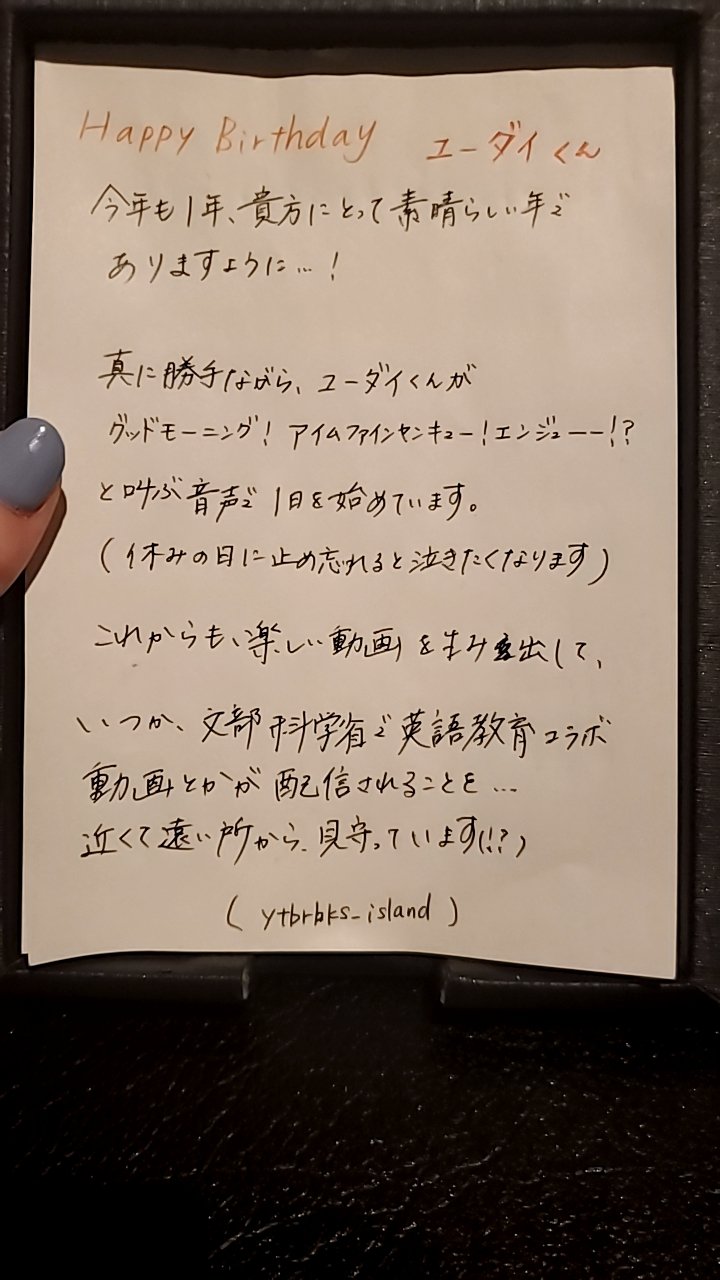 Happy Birthday ユーダイくん
今年も1年、貴方にとって素晴らしい年で
ありますように…!
真に勝手ながら、ユーダイくんが
グッドモーニング! アイムファインセンキュー!エンジューー!?
と叫ぶ音声で 1日を始めています。
(休みの日に止め忘れると泣きたくなります)
これからも、楽しい動画を生み出して、
いつか、文部科学省で英語教育コラボ
動画とかが配信されることを…
近くて遠い所から、見守っています(!?)
(ytbrbks_island)